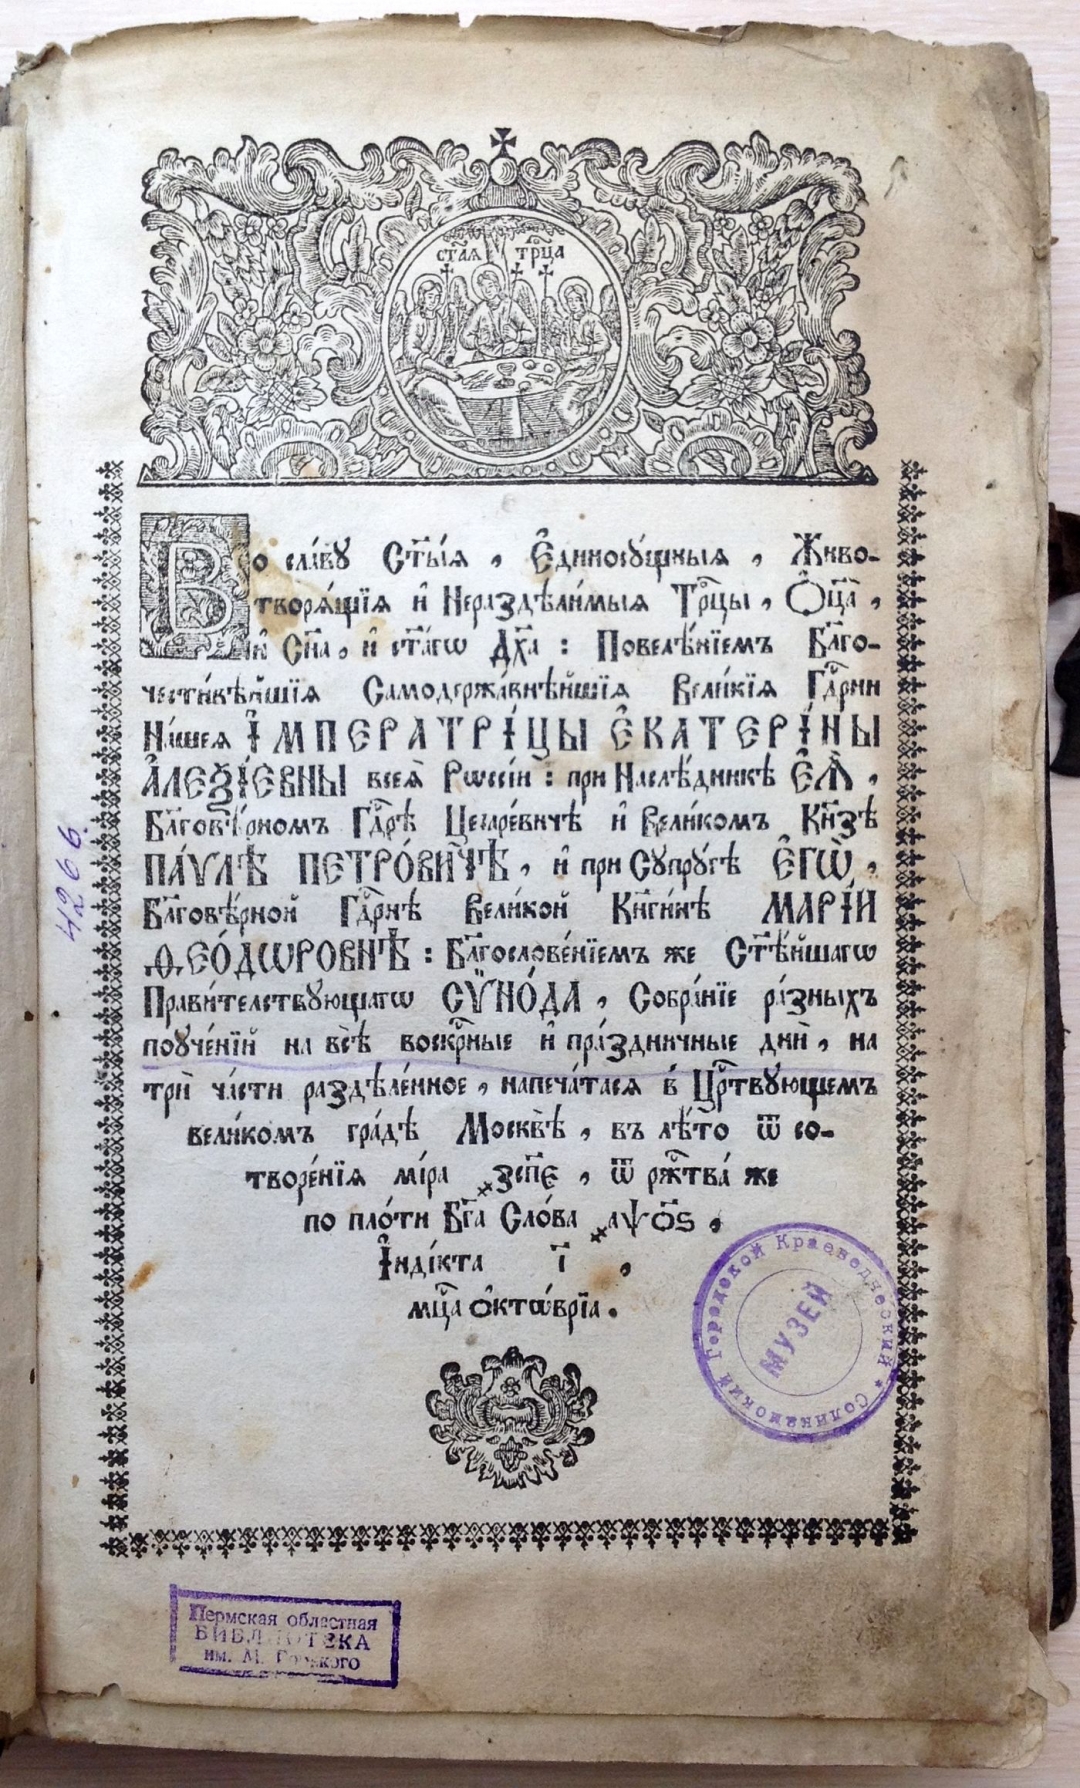 ст҃ая трⷪ҇ца
Во сла́вꙋ Ст҃ы́ѧ , Є҆диносꙋ́щныѧ , Живо-
творѧ́щїѧ и҆ Нераздѣли́мыѧ Трⷪ҇цы , Ѻ҆ц҃а̀ ,
и҆ Сн҃а , и҆ ст҃а́гѡ Дх҃а : Повелѣ́нїемъ Бл҃го-
чести́вѣйшїѧ Самодержа́внѣйшїѧ Вели́кїѧ Гдⷭ҇рни
На́шеѧ І҆МПЕРАТРІ́ЦЫ Є҆КАТЕРІ́НЫ
А҆ЛЕѮІ́ЕВНЫ всеѧ̀ Рѡссі́и : при Наслѣ́дникѣ Є҆Ѧ̀ ,
Бл҃говѣ́рномъ Гдⷭ҇рѣ Цесаре́вичѣ и҆ Вели́комъ Кн҃зѣ
ПА́ѴЛѢ ПЕТРО́ВИЧѢ , и҆ при Сꙋпрꙋ́гѣ Є҆ГѠ̀ ,
Бл҃говѣ́рной Гдⷭ҇рнѣ Вели́кой Кн҃ги́нѣ МАРІ́И
Ѳ҆ЕО́ДѠРОВНѢ : Бл҃гослове́нїемъ же Ст҃ѣ́йшагѡ
Прави́телствꙋющагѡ СѴНО́ДА , Собра́нїе ра́зныхъ
поꙋче́нїй на всѣ̀ воскрⷭ҇ные и҆ пра́здничные дни̑ , на
трѝ ча́сти раздѣле́нное , напеча́тасѧ в̾ Црⷭ҇твꙋющемъ
вели́комъ гра́дѣ Москвѣ̀ , въ лѣ́то ѿ со-
творе́нїѧ мі́ра ҂зсп҃є , ѿ ржⷭ҇тва́ же
по пло́ти Бг҃а Сло́ва ҂аѱо҃ѕ ,
І҆ндікта і҃ ,
мцⷭ҇а о҆ктѡ́врїа .
4266
Соликамский Городской Краеведческий
МУЗЕЙ
Пермская областная
БИБЛИОТЕКА
им. М. Горького